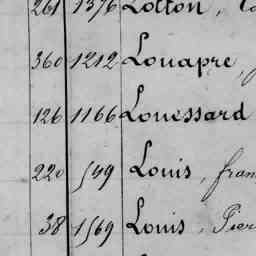 261 1376 Lotton,
360 1212 Louapre,
126 1166 Louessard
220 549 Louis, fran
38 1569 Louis, Pier